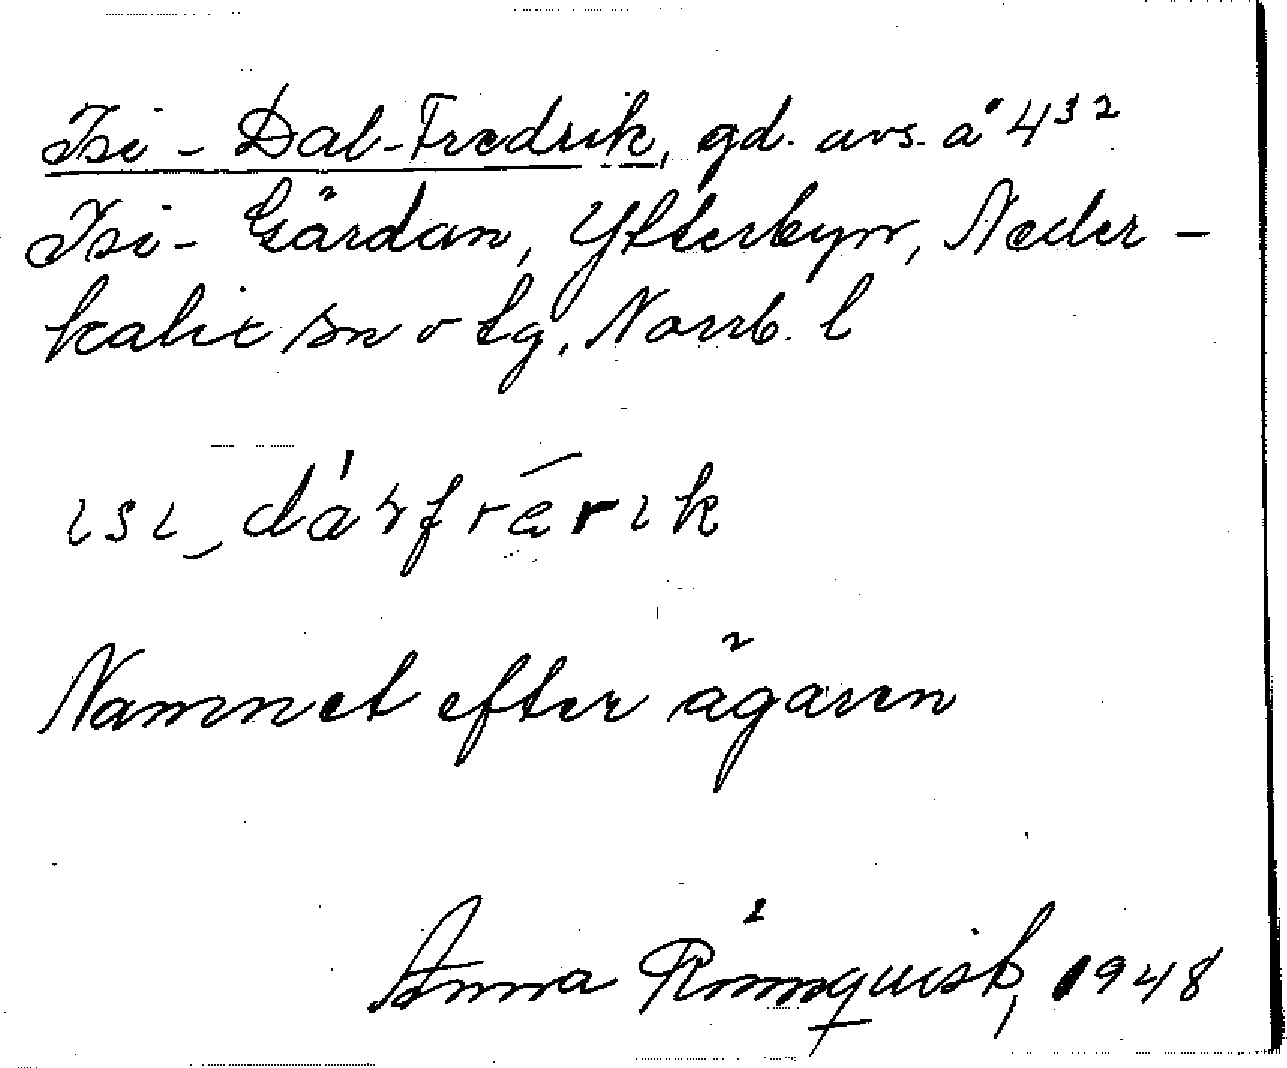 Isi-Dal-Fredrik, gd. avs. å 4³²
Isi-Gärdan, Ytterbyn, Neder-
kalix sn o tg, Norrb. l
Namnet efter ägaren
Anna Rönnquist, 1948